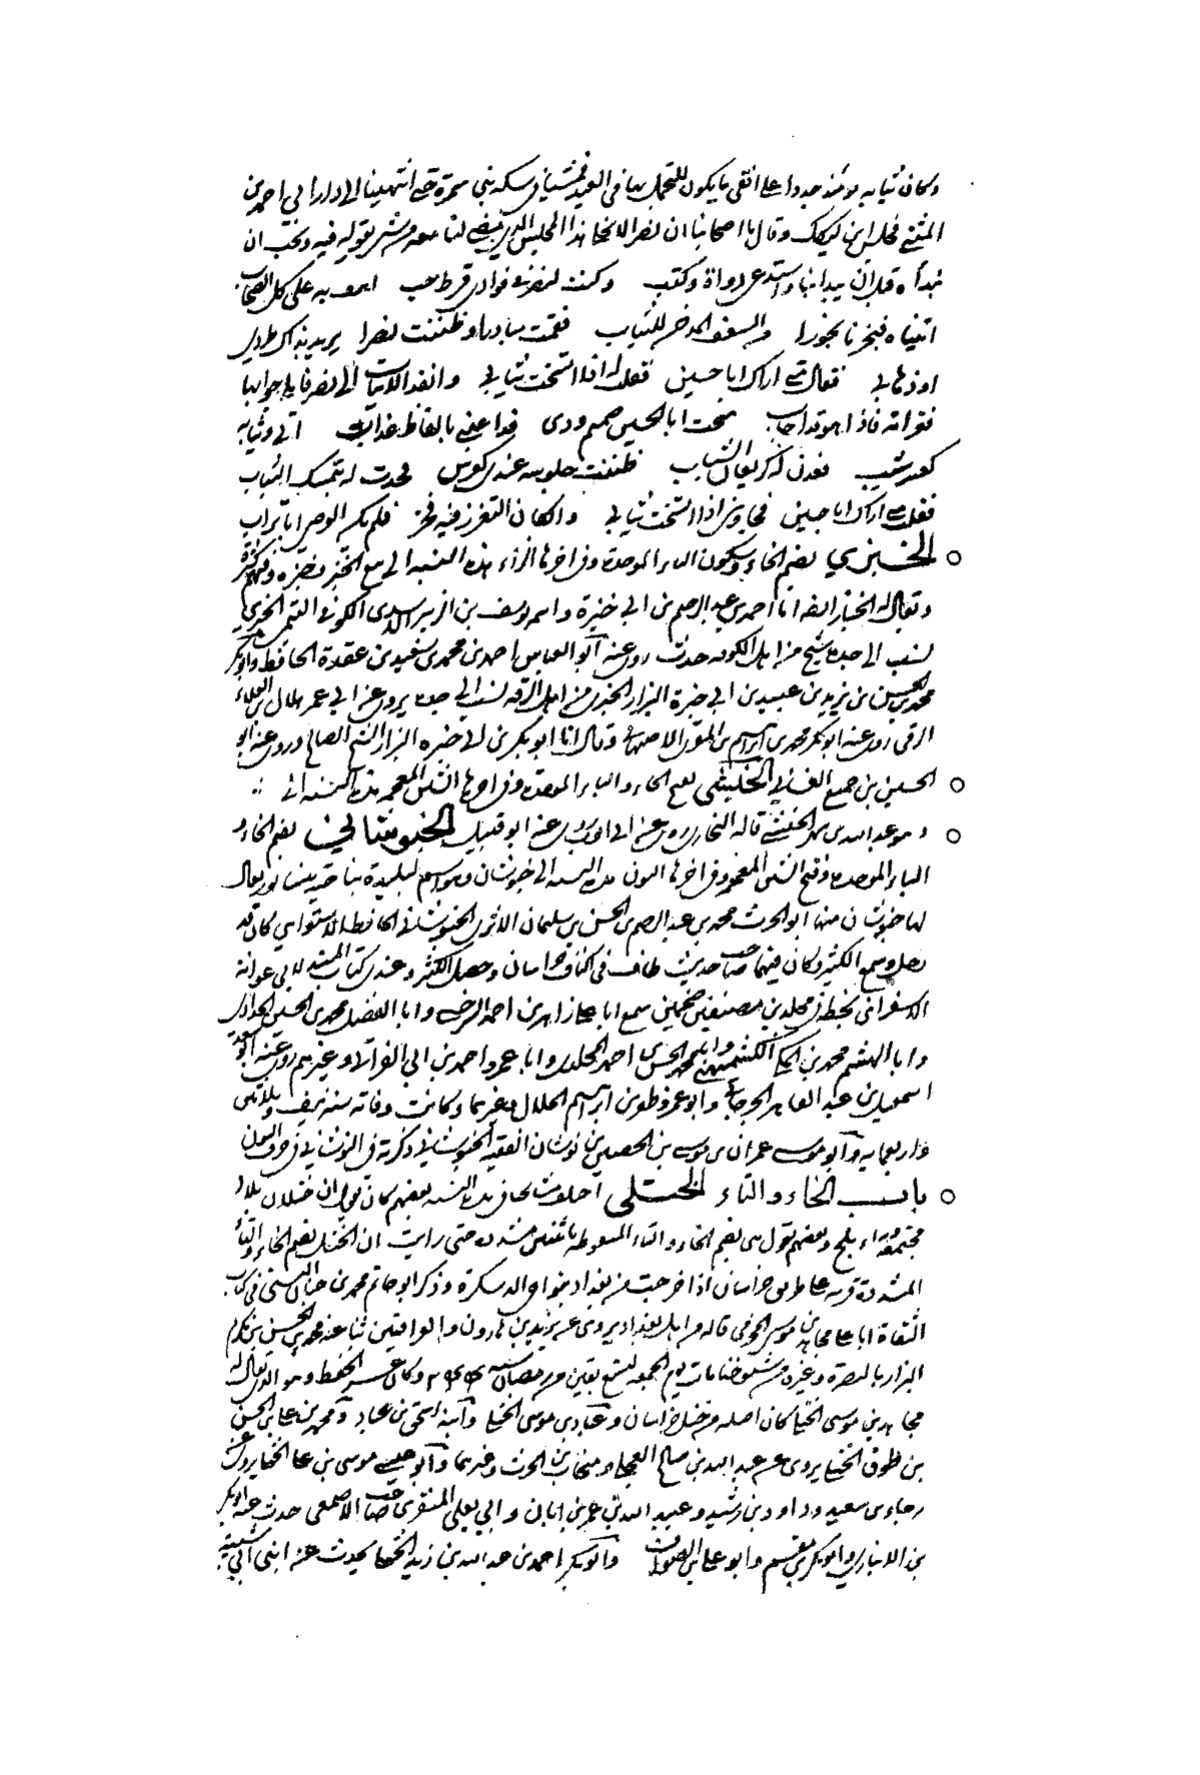 وكان ثيابه يومئذ جددا على انقى ما يكون للتجمل بها فى العيد فمشينا فى سكة بنى سمرة حتى انتهينا الى دار ابى احمد بن
المثنى فجلس ابن لنكك وقال يا اصحابنا ان نصرا لا يخلى هذا المجلس الذى مضى لنا معه من شىء يقوله فيه ونحب ان
نبدأه قبل ان يبدأنا واستدعى دواة وكتب لنصر فى فوادى فرط حب على كل الصحاب
اتيناه فبخرنا بخورا من السعف المدخن للثياب فقمت مبادرا وظننت نصرا يريد بذاك طردى
او ذهابى فقال متى اراك ابا حسين فقلت له اذا اتسخت ثيابى وانفذ الابيات الى نصر فاملى جوابها
فقرأناه فاذا هو قد اجاب منحت ابا الحسين صميم ودى فداعبنى بالفاظ عذاب اتى وثيابه
كعد شيب فعدن له كريعان الشباب ظننت جلوسه عندى كعرس فجدت له بتمسيك الثياب
فقلت متى اراك ابا حسين فجاوبنى اذا اتسخت ثيابى وان كان التقزز فيه فخر فلم يكن الوصى ابا تراب
الخبزي بضم الخاء وسكون الباء الموحدة وفى اخرها الزاء هذه النسبة الى بيع الخبز وخبزه وفيهم كثرة
ويقال له الخباز ايضا احمد بن عبد الرحيم بن ابى خبزة واسمه يوسف بن الزبير الاسدى الكوفى التيمى الخبزى
نسب الى جده شيخ من اهل الكوفة حدث روى عنه ابو العباس احمد بن محمد بن سعيد بن عقدة الحافظ وابو بكر
محمد بن الحسين بن يزيد بن عبيد بن ابى خبزة البزاز الخبزى من اهل الرقة نسب الى جده يروى عن ابى عمر هلال بن العلاء
الرقى روى عنه ابو بكر محمد بن ابراهيم بن المقرى الاصبهانى وقال انا ابو بكر بن ابى خبزه البزاز الشيخ الصالح وروى عنه ابو
الحسين بن جميع الغسانى الخبشى بفتح الخاء والباء الموحدة وفى اخرها الشين المعجمة هذه النسبة الى
وهو عبد الله بن شهر الخبشى قاله البخارى روى عنه ابو قبيل الخبوشاني بضم الخاء و
الباء الموحدة وفتح الشين المعجمة وفى اخرها النون هذه النسبة الى خبوشان وهو اسم لبليدة بناحية نيسابور يقال
لها خبوشان منها ابو الحرث محمد بن عبد الرحيم بن الحسن بن سليمان الاثرى الخبوشانى الحافظ الاستوائى كان قد
رحل وسمع الكثير وكان فهما صاحب حديث طاف فى اكناف خراسان وحصل الكثير وعندى كتاب المسند لابى عوانة
الاسفراينى بخطه فى مجلدين مصنفين ضخمين سمع ابا على زاهر بن احمد السرخسى وابا الفضل محمد بن الحسين الحدادى
وابا الهيثم محمد بن المكى الكشميهنى وابا محمد الحسن بن احمد المخلدى وابا عمرو احمد بن ابى الفراتى وغيرهم روى عنه ابو سعد
اسمعيل بن عبد القاهر الجرجانى وابو عمرو ظفر بن ابراهيم الخلالى وغيرهما وكانت وفاته سنة نيف وثلاثين
واربعمايه وابو موسى عمران بن موسى بن الحصين بن نوشان الفقيه الخبوشانى ذكرته فى النوشانى فى حرف النون
باب الخاء والتاء الختلى اختلف مشايخنا فى هذه النسبة بعضهم كان يقول ان ختلان بلاد
مجتمعة وراء بلخ وبعضهم يقول هى بضم الخاء والتاء المنقوطة باثنتين مشددة حتى رايت ان الختل بضم الخاء والتاء
المشددة قرية على طريق خراسان اذا خرجت من بغداد بنواحى الدسكرة وذكر ابو حاتم محمد بن حبان البستى فى كتاب
الثقاة ابا على مجاهد بن موسى الخوارزمى قاله من اهل بغداد يروى عن يزيد بن هارون والعراقيين ثنا عنه محمد بن الحسين بن مكرم
البزار بالبصرة وغيره من شيوخنا مات يوم الجمعة لتسع بقين من رمضان سنة وكان عسر الحفظ وهو الذى يقال له
مجاهد بن موسى الختلى كان اصله من ختل خراسان وعباد بن موسى الختلى وابنه اسحق بن عباد ومحمد بن على بن الحسن
بن طوق الختلى يروى عن عبد الله بن صالح العجلى ومنجاب بن الحرث وغيرهما وابو عيسى موسى بن على الختلى يروى عن
رجاء بن سعيد وداود بن رشيد وعبيد الله بن عمر بن ابان وابى يعلى المنقرى صاحب الاصمعى حدث عنه ابو بكر
بن الانبارى وابو بكر بن مقسم وابو على بن الصواف وابو بكر احمد بن عبد الله بن زيد الختلى يحدث عن ابنى ابى شيبة